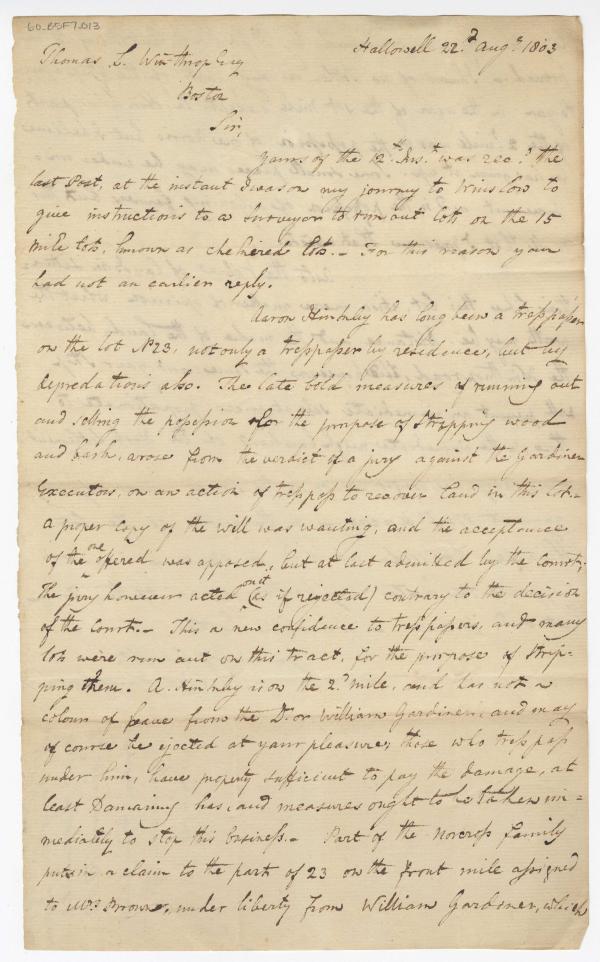 60.B5F7.013
Hallowell 22.d Aug.t 1803
Thomas L. Winthrop Esq
Boston
Sir,
yours of the 12th Inst. was rec.d the
last Post, at the instant I was on my journey to Winslow to
give instructions to a Surveyor to run out lots on the 15
mile lots, known as chekired lots.- For this reason your
had not an earlier reply.
Aaron Hinkley has long been a tresspasser
on the lot N 23, not only a tresspasser by residence, but by
depredations also. The late bold measures of running out
and selling the possession for the purpose of Stripping wood
and bark, arose from the verdict of a jury against the Gardiner
Executors, on an action of tresspass to recover land in this lot.-
a proper copy of the will was wanting, and the acceptance
of the one offered was apposed, but at last admitted by the Court;
The jury however acted (as if rejected) contrary to the decision
of the Court.- This a new confidence to tresspassers, and many
lots were run out on this tract, for the purpose of Strip-
ping them. A. Hinkley is on the 2.d mile, and has not a
colour of leave from the D.or William Gardiner, and may
of course be ejected at your pleasure; those who tresspass
under him, have property sufficient to pay the damage, at
least has, and measures ought to be taken im-
mediately to stop this business.- Part of the Norcross family
puts in a claim to the part of 23 on the front mile assigned
to Mrs Browne, under liberty from William Gardiner, which